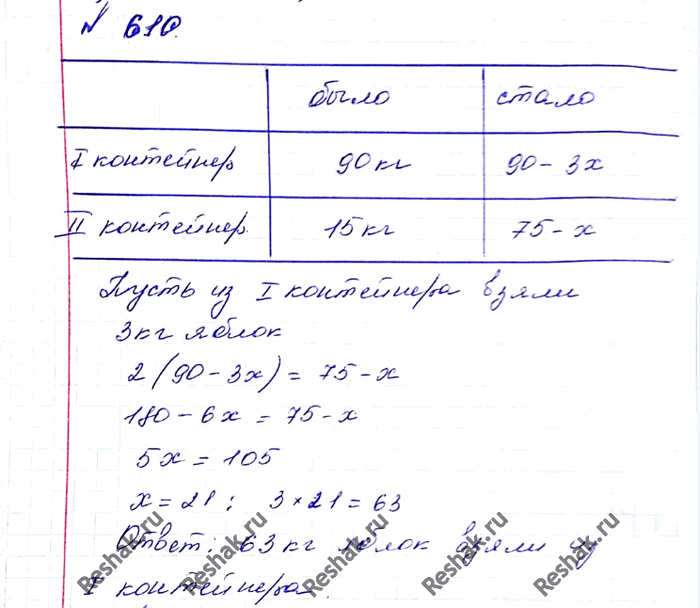 № 610.
было стало
I контейнер 90 кг 90 - 3x
II контейнер 15 кг 75 - x
Пусть из I контейнера взяли
3 кг яблок
2(90 - 3x) = 75 - x
180 - 6x = 75 - x
5x = 105
x = 21; 3 × 21 = 63
Ответ: 63 кг яблок взяли из
I контейнера.
Reshak.ru
Reshak.ru
Reshak.ru
Reshak.ru
Reshak.ru